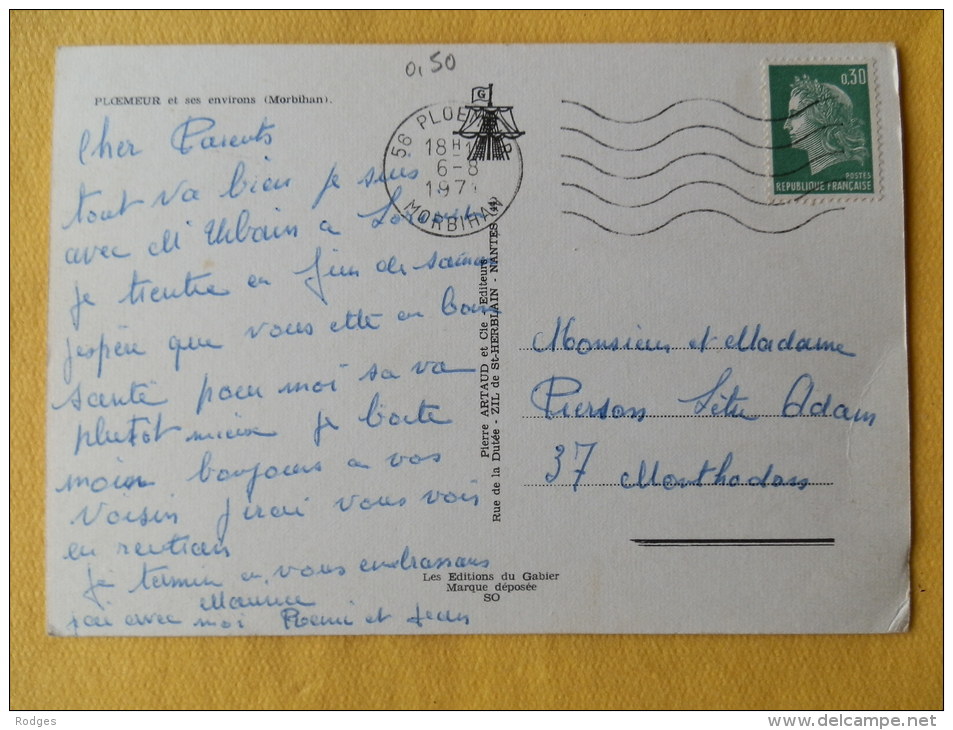 0,50
PLŒMEUR et ses environs (Morbihan).
G
56 PLOE
18 H
6-8
197
MORBIHAN
0,30
POSTES
REPUBLIQUE FRANÇAISE
Cher Parents
tout va bien je suis
avec Mr Urbain a
je rentre en fin de
j'espère que vous ette en bone
santé pour moi sa va
plutôt mieux je boite
moin bonjours a vos
Voisin j'irai vous voir
en rentran
je termin en vous embrassans
Maurice
j'ai avec moi Rémi et Jean
Pierre ARTAUD et Cie - Editeurs
Rue de la Dutée - ZIL de St-HERBLAIN - NANTES (44)
Monsieur et Madame
Pierson Adam
37 Monthodon
Les Editions du Gabier
Marque déposée
SO
Rodges
www.delcampe.net